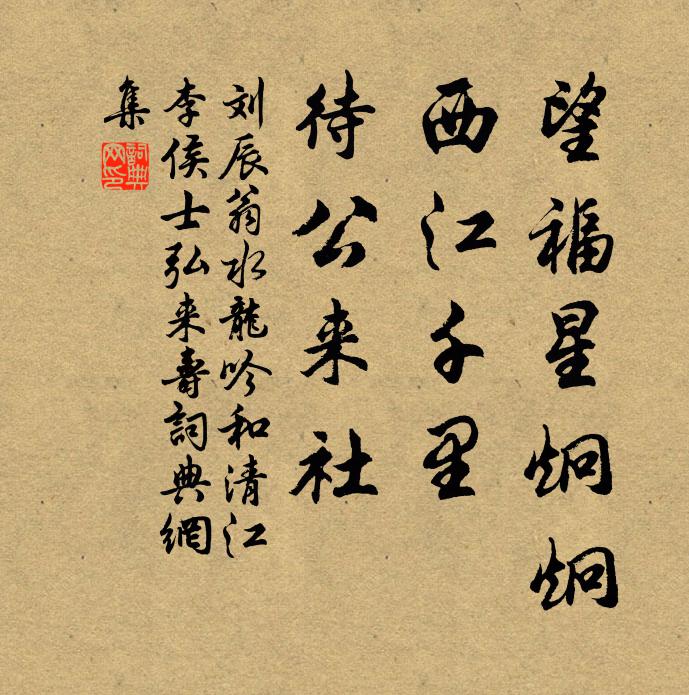 望福星炯炯
西江千里
待公来社
刘辰翁水龍吟和清江
李侯士弘来壽詞典網
集
詞典網印